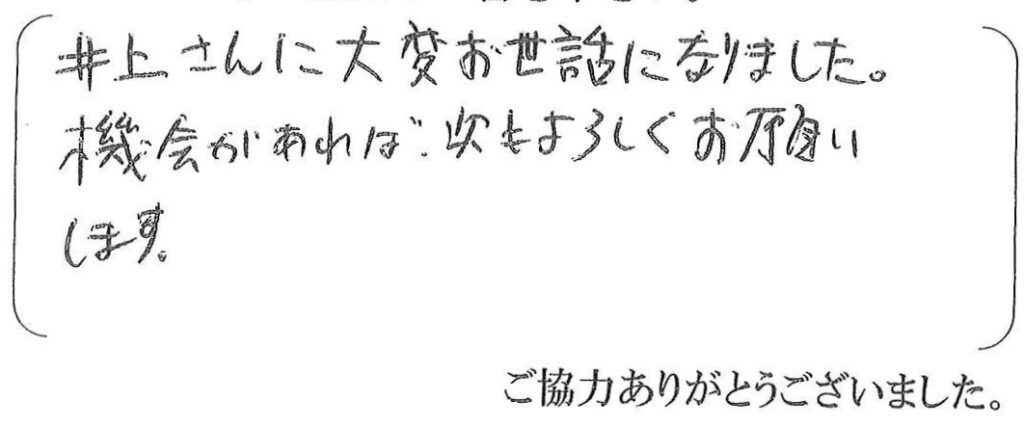 井上さんに大変お世話になりました。
機会があれば、次もよろしくお願い
します。
ご協力ありがとうございました。